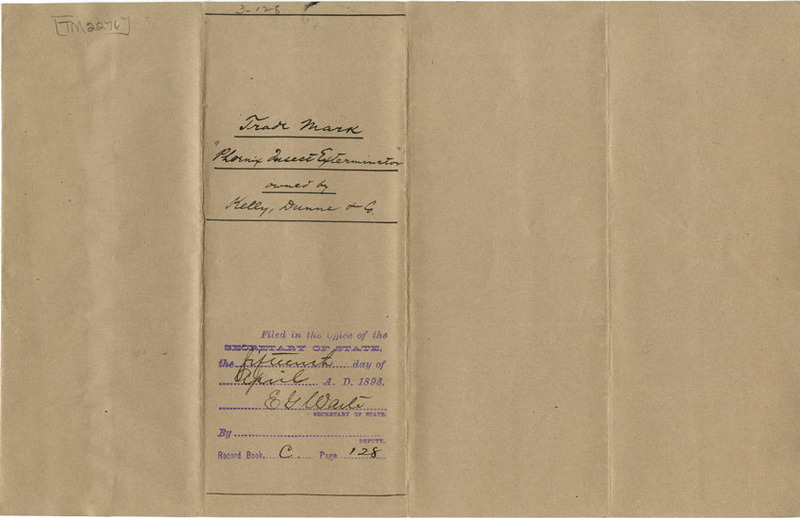 [TM2276]
3-128
Trade Mark
"Phoenix Insect Exterminator"
owned by
Kelly, Dunne & Co.
Filed in the Office of the
SECRETARY OF STATE,
the fifteenth day of
April A. D. 1893,
E G Waite
SECRETARY OF STATE.
By
DEPUTY.
Record Book, C Page 128